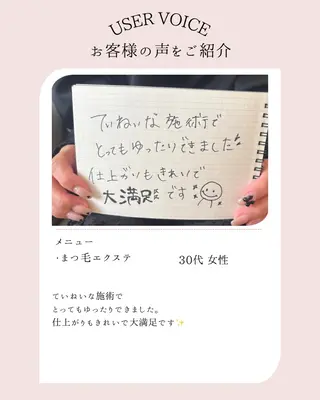 USER VOICE
お客様の声をご紹介
ていねいな施術で
とってもゆったりできました
仕上がりもきれいで
大満足です
メニュー
・まつ毛エクステ
30代 女性
ていねいな施術で
とってもゆったりできました。
仕上がりもきれいで大満足です✨